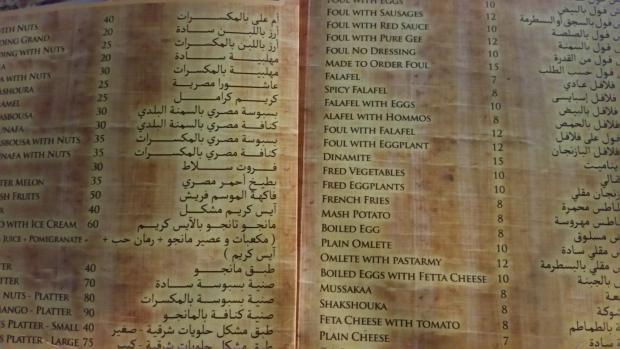 WITH NUTS 40 أم على بالمكسرات
DING GRAND 20 أرز باللبن سادة
DING WITH NUTS 30 أرز باللبن بالمكسرات
20 مهلبية سادة
A WITH NUTS 30 مهلبية بالمكسرات
ASHOURA 25 عاشورا مصرية
AMEL 25 كريم كرامل
BASBOUSA 30 بسبوسة مصري بالسمنة البلدي
UNAFA 30 كنافة مصري بالسمنة البلدي
BASBOUSA WITH NUTS 35 بسبوسة مصري بالمكسرات
UNAFA WITH NUTS 35 كنافة مصري بالمكسرات
30 فروت سلاط
TER MELON 35 بطيخ أحمر مصري
SH FRUITS 50 فاكهة الموسم فريش
40 آيس كريم مشكل
O WITH ICE CREAM 60 مانجو تانجو بالآيس كريم
JUICE + POMIGRANATE + ( مكعبات و عصير مانجو + رمان حب +
آيس كريم )
TTER 40 طبق مانجو
TTER 70 صنية بسبوسة سادة
NUTS - PLATTER 80 صنية بسبوسة بالمكسرات
MANGO - PLATTER 90 صنية كنافة بالمانجو
TS PLATTER - SMALL 40 طبق مشكل حلويات شرقية - صغير
TS PLATTER - LARGE 75 طبق مشكل حلويات شرقية - كبير
FOUL WITH EGGS 10 فول بالبيض
FOUL WITH SAUSAGES 12 فول بالسجق أو البسطرمة
FOUL WITH RED SAUCE 10 فول بالصلصة
FOUL WITH PURE GEF 12 فول بالسمنة
FOUL NO DRESSING 10 فول من القدرة
MADE TO ORDER FOUL 15 فول حسب الطلب
FALAFEL 7 فلافل عادي
SPICY FALAFEL 8 فلافل اسبايسى
FALAFEL WITH EGGS 10 فلافل بالبيض
ALAFEL WITH HOMMOS 8 فلافل بالحمص
FOUL WITH FALAFEL 12 فول على فلافل
FOUL WITH EGGPLANT 12 فول بالباذنجان
DINAMITE 15
FRED VEGETABLES 10
FRED EGGPLANTS 10 مقلي
FRENCH FRIES 8 محمرة
MASH POTATO 8 مهروسة
BOILED EGG 8 مسلوق
PLAIN OMLETE 8 مقلي سادة
OMLETE WITH PASTARMY 12 مقلي بالبسطرمة
BOILED EGGS WITH FETTA CHEESE 10 بالجبنة
MUSSAKAA 8
SHAKSHOUKA 8
FETA CHEESE WITH TOMATO 8 بالطماطم
PLAIN CHEESE 7 سادة